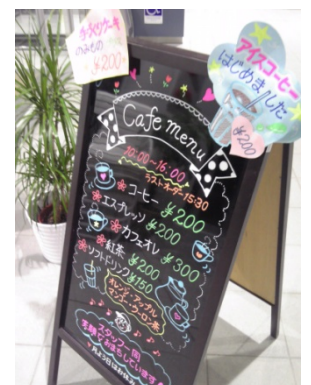 手づくりケーキ
のみもの
¥200
アイスコーヒー
はじめました
¥200
Cafe menu
10:00~16:00
ラストオーダー15:30
コーヒー ¥200
エスプレッソ ¥200
カフェオレ ¥300
紅茶 ¥200
ソフトドリンク ¥150
オレンジ・アップル
マンゴー・ウーロン茶
スタッフ一同
笑顔でおまちしています